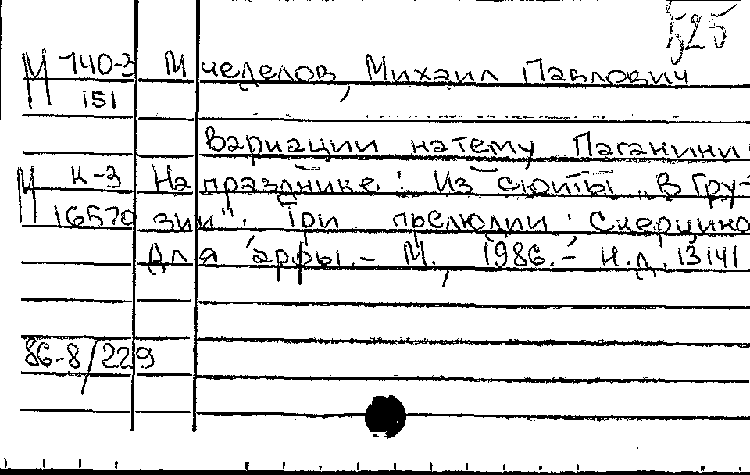 525
М 740-3 Мчеделов, Михаил Павлович
151
Вариации на тему Паганини.
М К-3 На празднике: Из сюиты „В Гру-
16570 зии". Три прелюдии. Скерцино
для арфы. - М., 1986. - н.д. 13141
86-8/229